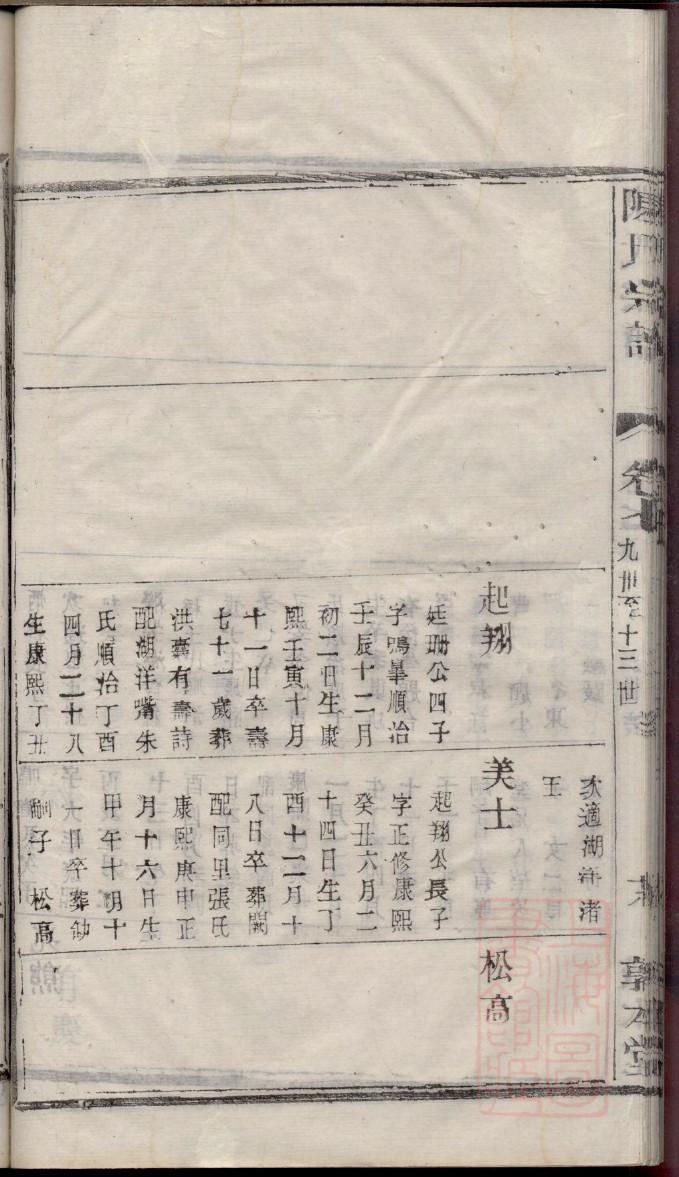 陳氏宗譜
卷
九世至十三世
敦本堂
起翔
廷珊公四子
字鳴皋順治
壬辰十二月
初二日生康
熙壬寅十月
十一日卒壽
七十一歲葬
洪󠄀有壽詩
配湖洋嘴朱
氏順治丁酉
四月二十八
生康熙丁丑
次適湖洋渚
王
美士
起翔公長子
字正修康熙
癸丑六月二
十四日生丁
酉十二月十
八日卒葬闕
配同里張氏
康熙庚申正
月十六日生
甲午十月十
一日卒葬
嗣子 松高
松高